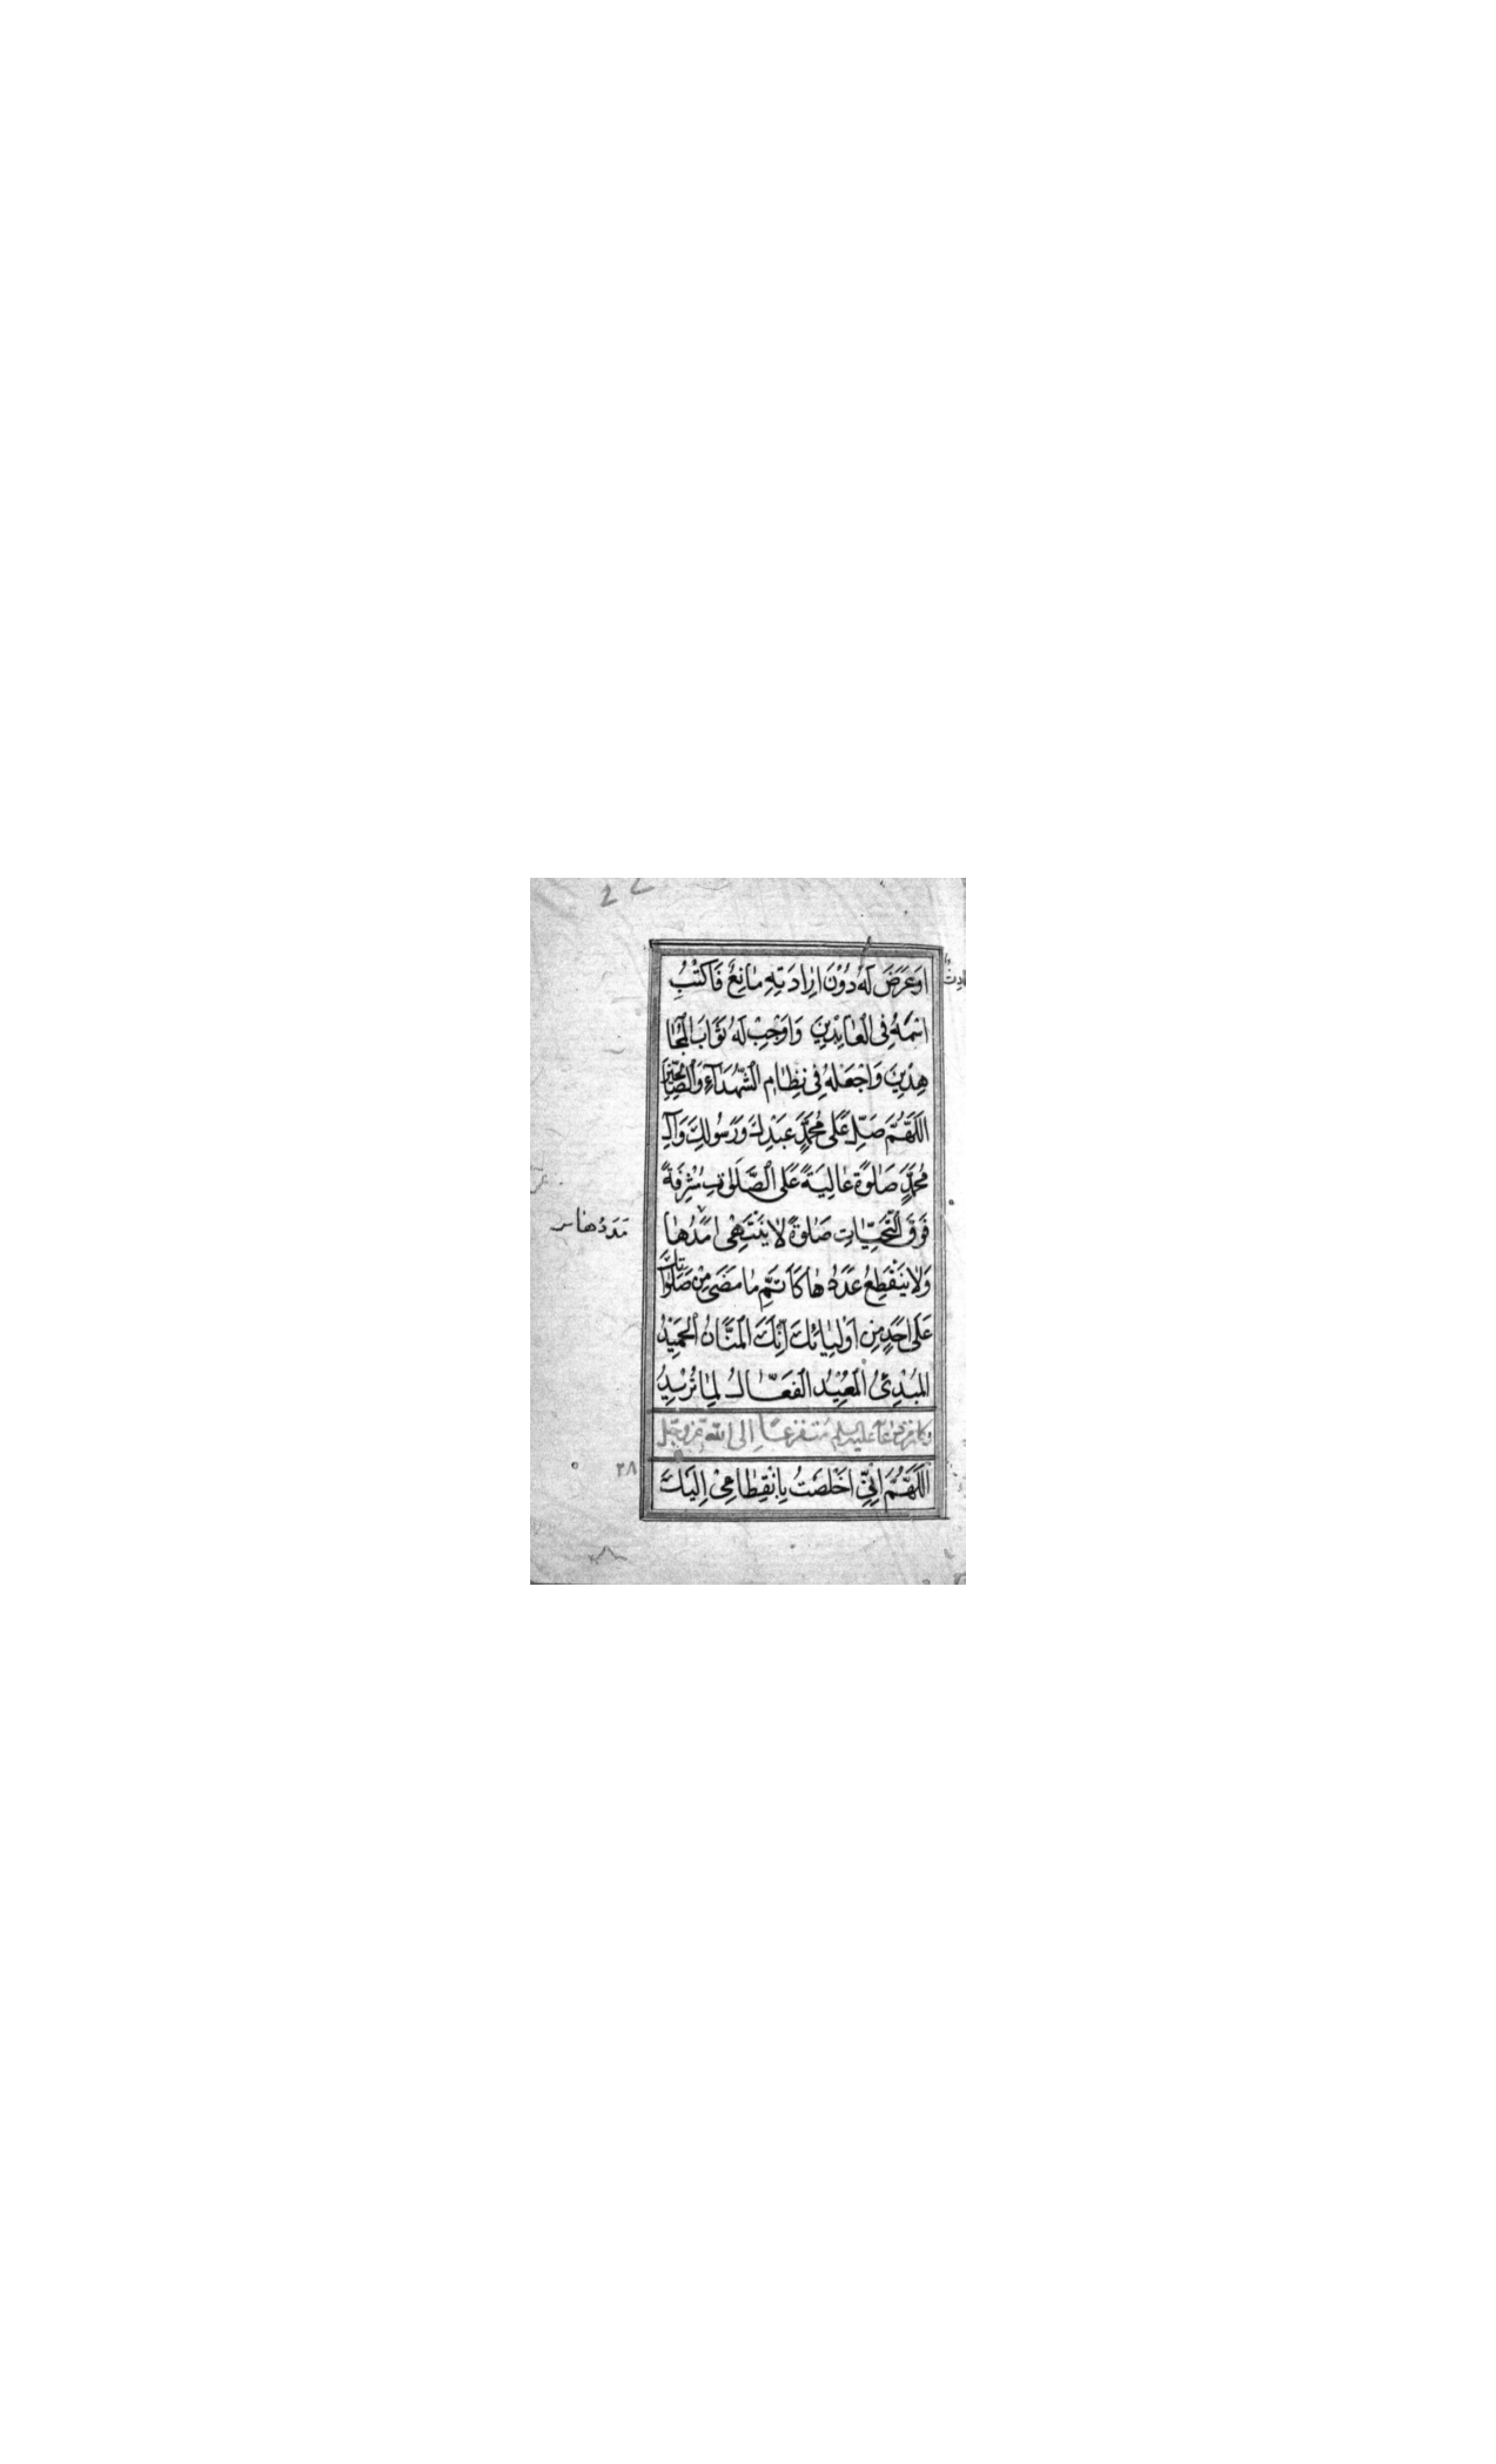 اَوْعَرَضَ لَهُ دُوْنَ اِرادَتِهِ مٰانِعٌ فَاكْتُبِ
اسْمَهُ فِى الْعٰابِدِينَ وَاَوْجِبْ لَهُ ثَوٰابَ الْمُجٰا
هِدِينَ وَاجْعَلْهُ فِى نِظٰامِ الشُّهَدَآءِ وَالصّٰالِحِينَ
اَللّٰهُمَّ صَلِّ عَلٰى مُحَمَّدٍ عَبْدِكَ وَرَسُولِكَ وَآلِ
مُحَمَّدٍ صَلٰوةً عٰالِيَةً عَلَى الصَّلَوٰاتِ مُشْرِفَةً
فَوْقَ التَّحِيّٰاتِ صَلٰوةً لٰا يَنْتَهِى اَمَدُهٰا
مَدَدُهٰا
وَلٰا يَنْقَطِعُ عَدَدُهٰا كَاَتَمِّ مٰا مَضٰى مِنْ صَلَوٰاتِكَ
عَلٰى اَحَدٍ مِنْ اَوْلِيٰائِكَ اِنَّكَ الْمَنّٰانُ الْحَمِيْدُ
الْمُبْدِئُ الْمُعِيْدُ الْفَعّٰالُ لِمٰا تُرِيْدُ
وكان من دعائه عليه السلم مُتفزعًا اِلى الله عزوجل
٢٨
اَللّٰهُمَّ اِنِّى اَخْلَصْتُ بِانْقِطٰاعِى اِلَيْكَ